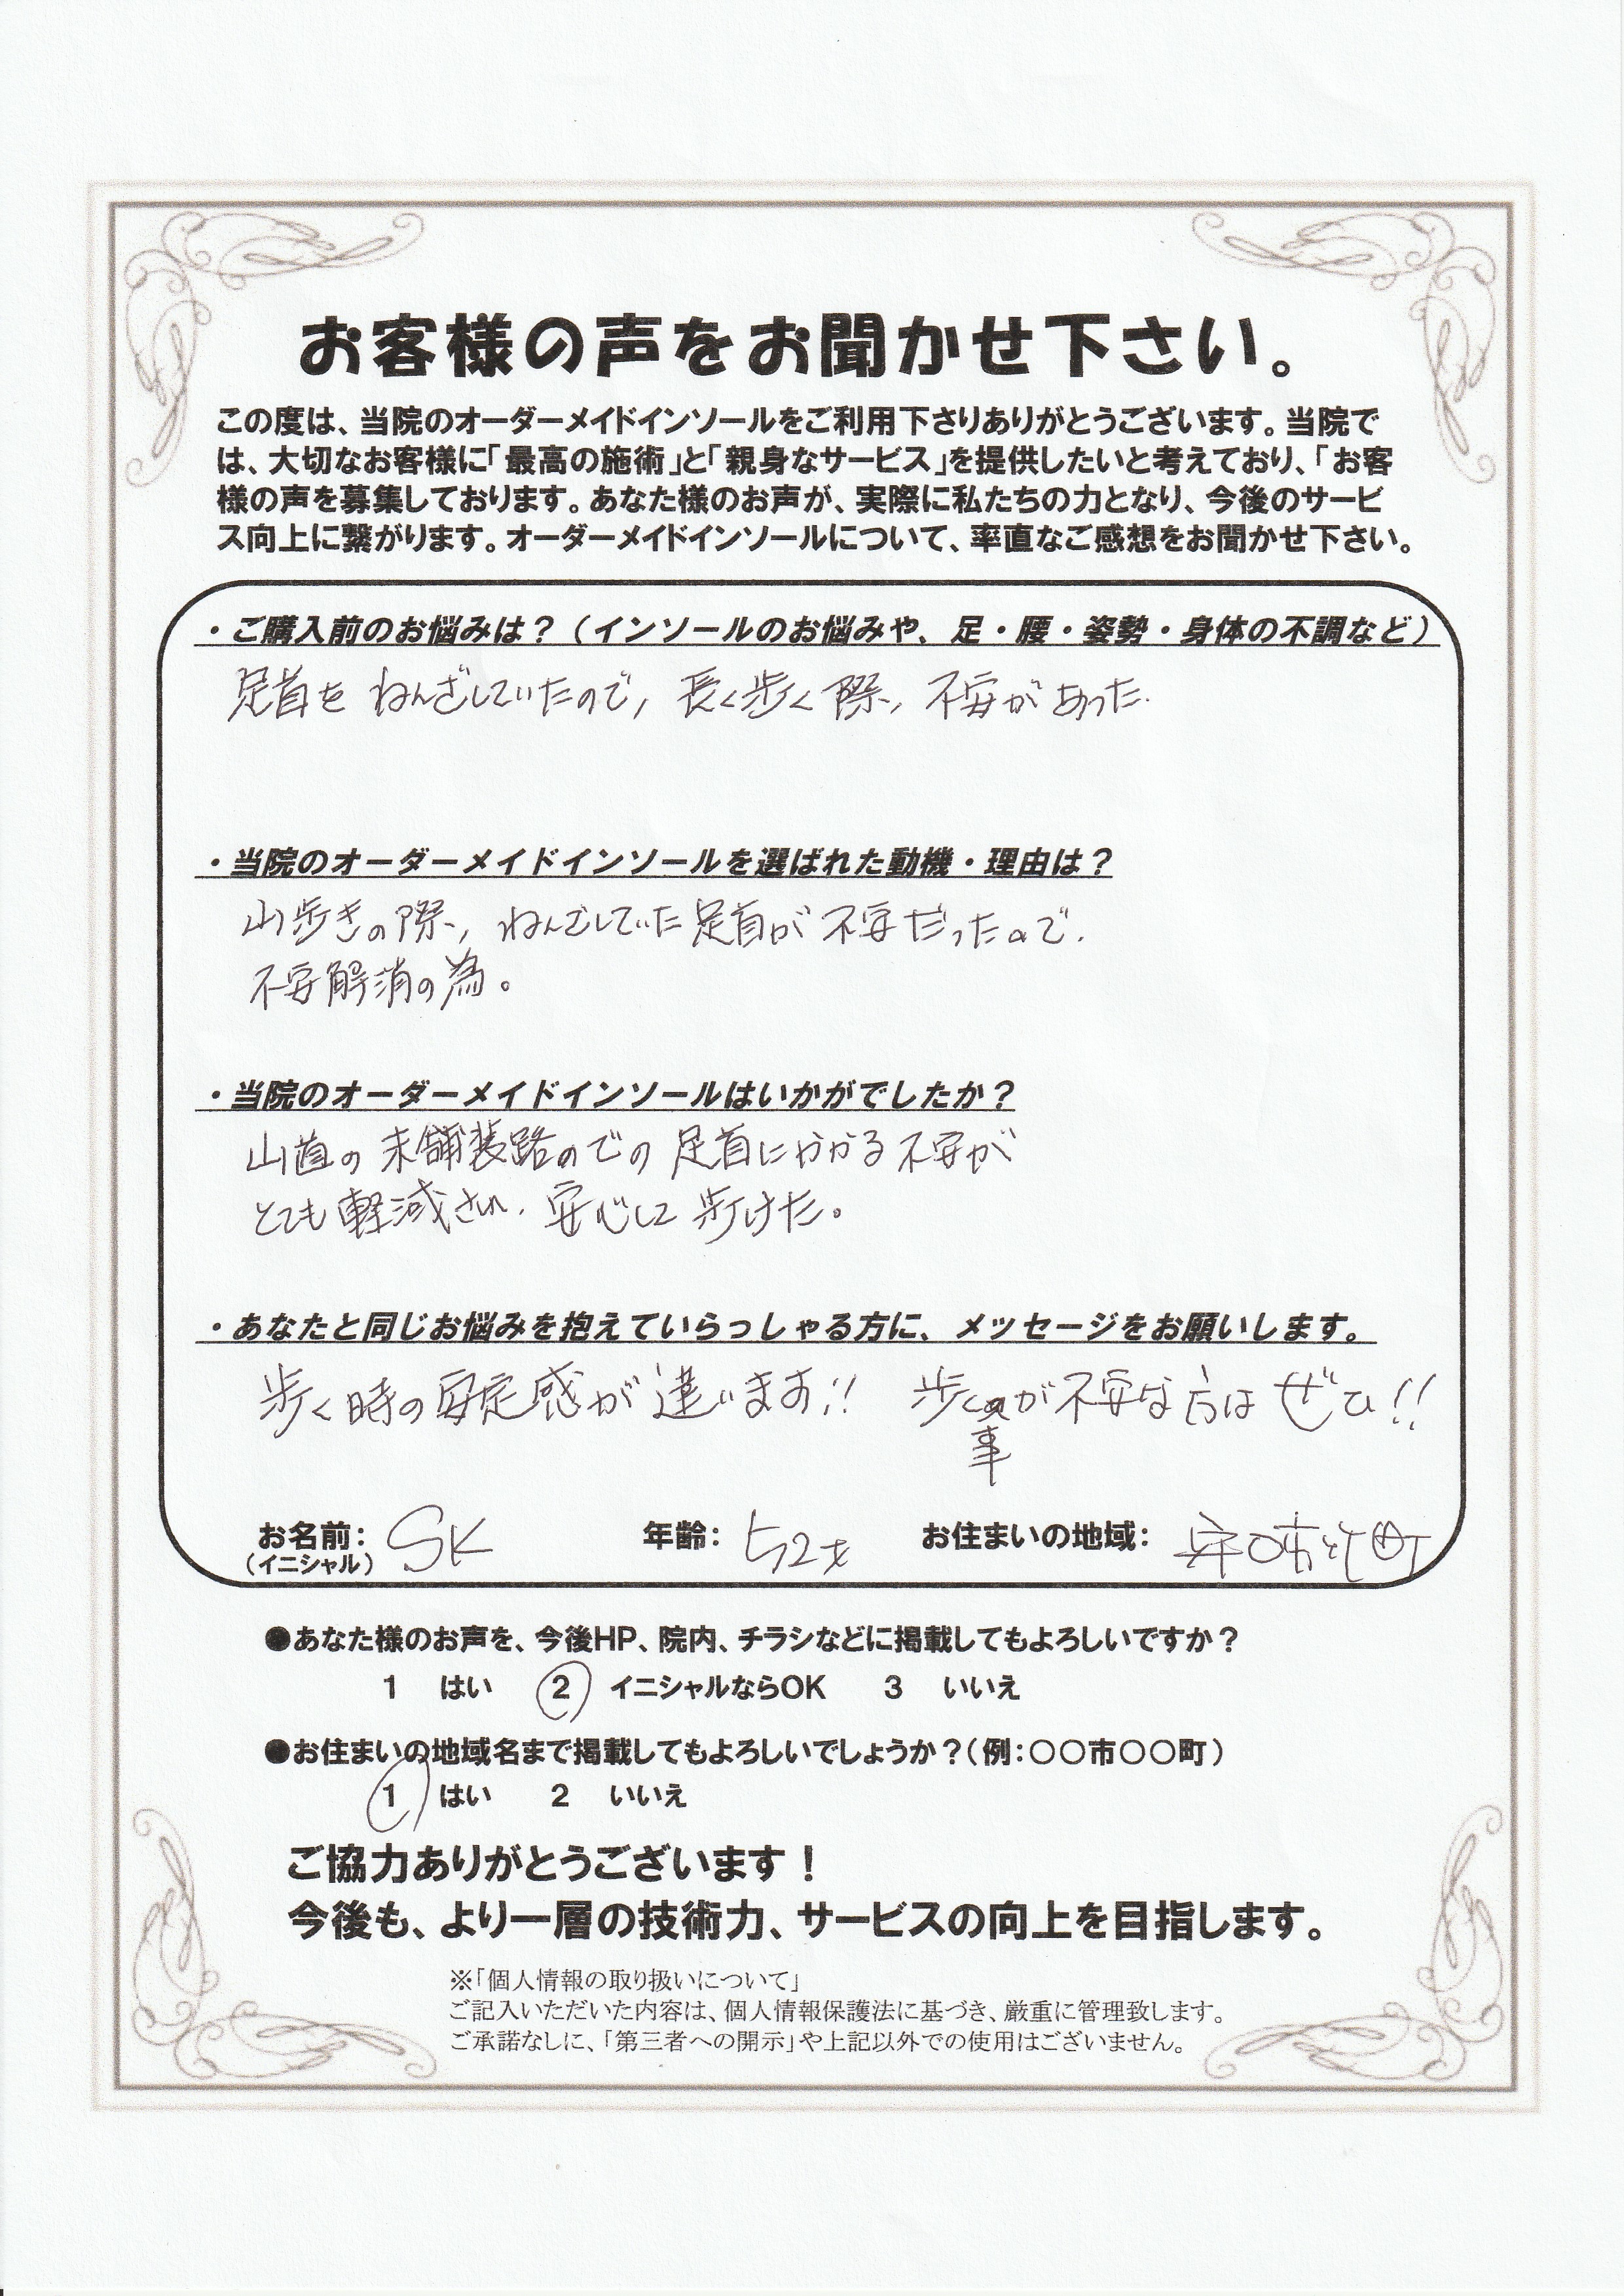 お客様の声をお聞かせ下さい。
この度は、当院のオーダーメイドインソールをご利用下さりありがとうございます。当院で
は、大切なお客様に「最高の施術」と「親身なサービス」を提供したいと考えており、「お客
様の声を募集しております。あなた様のお声が、実際に私たちの力となり、今後のサービ
ス向上に繋がります。オーダーメイドインソールについて、率直なご感想をお聞かせ下さい。
・ご購入前のお悩みは？（インソールのお悩みや、足・腰・姿勢・身体の不調など）
足首を ねんざしていたので, 長く歩く際、不安があった.
・当院のオーダーメイドインソールを選ばれた動機・理由は？
山歩きの際、ねんざしていた足首が不安だったので.
不安解消の為。
・当院のオーダーメイドインソールはいかがでしたか？
山道の未舗装路のでの足首にかかる不安が
とても軽減され. 安心して歩けた。
・あなたと同じお悩みを抱えていらっしゃる方に、メッセージをお願いします。
歩く時の安定感が違います!! 歩く事が不安な方はぜひ!!
お名前: SK 年齢: 52才 お住まいの地域: 町
（イニシャル）
●あなた様のお声を、今後HP、院内、チラシなどに掲載してもよろしいですか？
1 はい 2 イニシャルならOK 3 いいえ
●お住まいの地域名まで掲載してもよろしいでしょうか？（例：〇〇市〇〇町）
1 はい 2 いいえ
ご協力ありがとうございます！
今後も、より一層の技術力、サービスの向上を目指します。
※「個人情報の取り扱いについて」
ご記入いただいた内容は、個人情報保護法に基づき、厳重に管理致します。
ご承諾なしに、「第三者への開示」や上記以外での使用はございません。